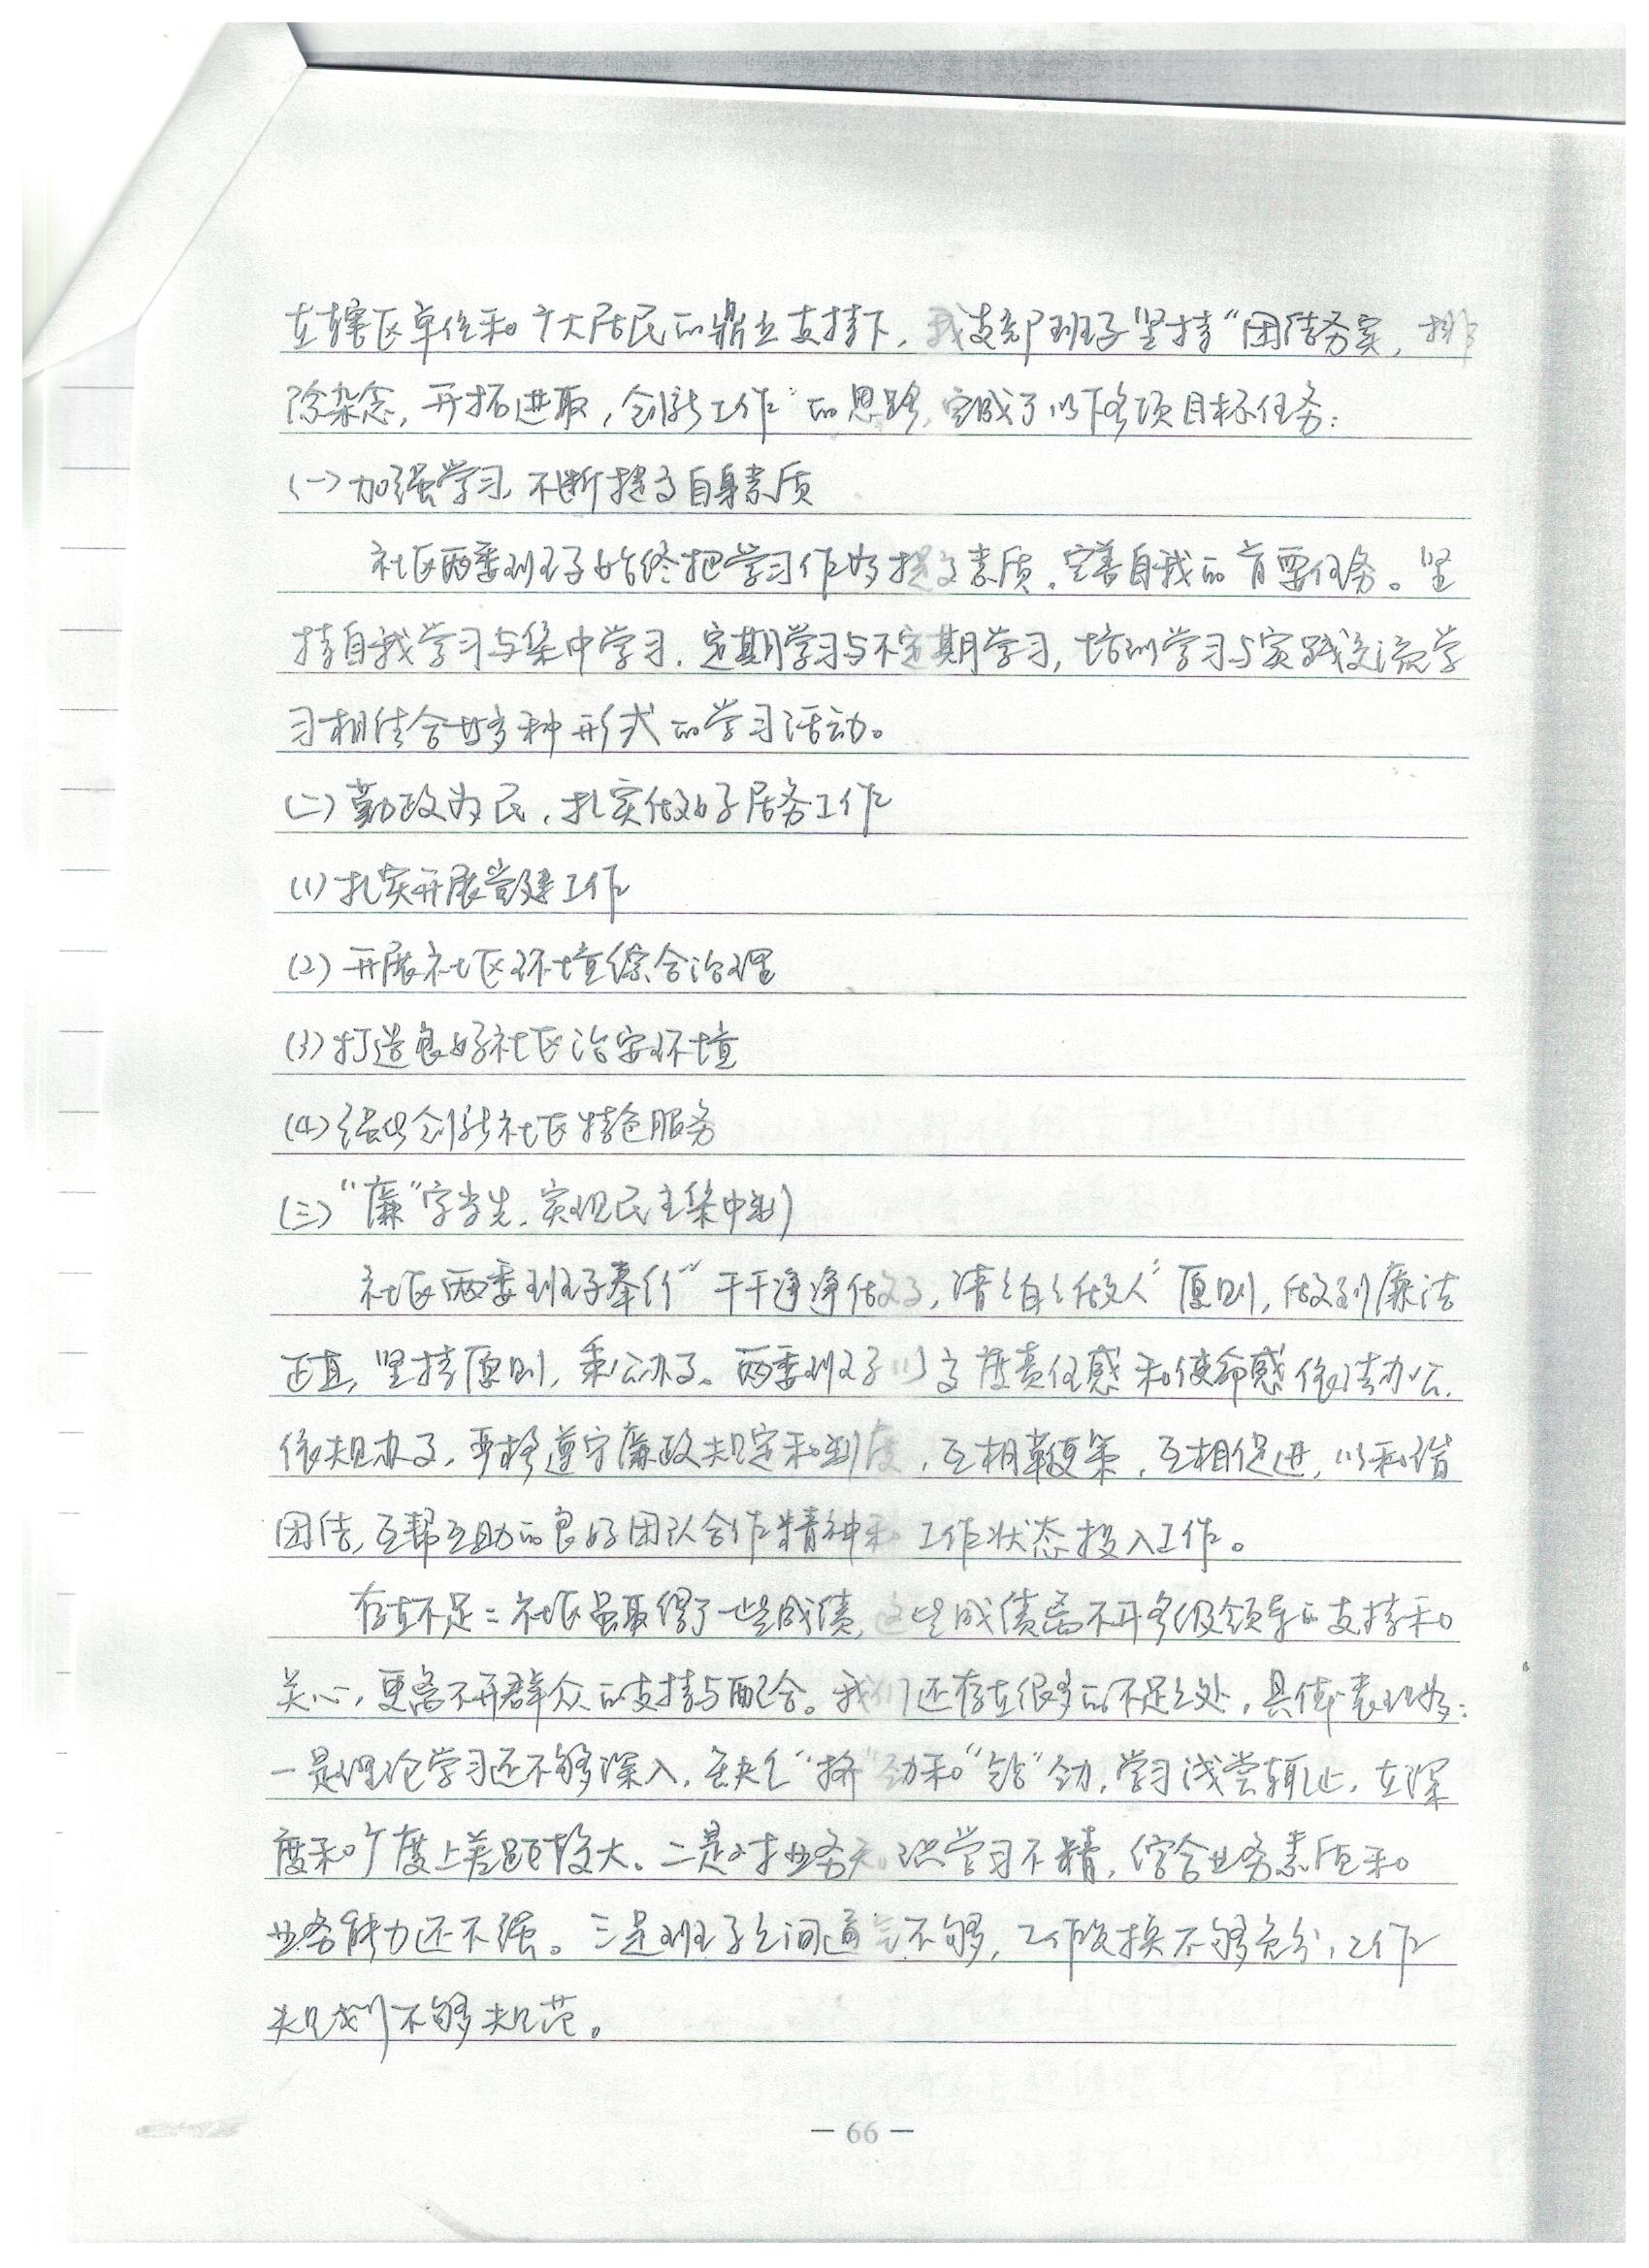 在辖区单位和广大居民的鼎立支持下，我支部班子坚持“团结务实，排
除杂念，开拓进取，创新工作”的思路，完成了以下各项目标任务：
(一)加强学习，不断提高自身素质
社区两委班子始终把学习作为提高素质，完善自我的首要任务。坚
持自我学习与集中学习，定期学习与不定期学习，培训学习与实践交流学
习相结合等多种形式的学习活动。
(二)勤政为民，扎实做好居务工作
(1)扎实开展党建工作
(2)开展社区环境综合治理
(3)打造良好社区治安环境
(4)强化创新社区特色服务
(三)“廉”字当先，实现民主集中制
社区两委班子奉行“干干净净做事，清清白白做人”原则，做到廉洁
正直，坚持原则，秉公办事。两委班子以高度责任感和使命感依法办公，
依规办事，严格遵守廉政规定和制度，互相鞭策，互相促进，以和谐
团结，互帮互助的良好团队合作精神和工作状态投入工作。
存在不足：社区虽取得了一些成绩，这些成绩离不开各级领导的支持和
关心，更离不开群众的支持与配合。我们还存在很多的不足之处，具体表现为：
一是理论学习还不够深入，缺乏“挤”劲和“钻”劲，学习浅尝辄止，在深
度和广度上差距较大。二是对业务知识学习不精，综合业务素质和
业务能力还不强。三是班子之间通气不够，工作交换不够充分，工作
规划不够规范。
— 66 —